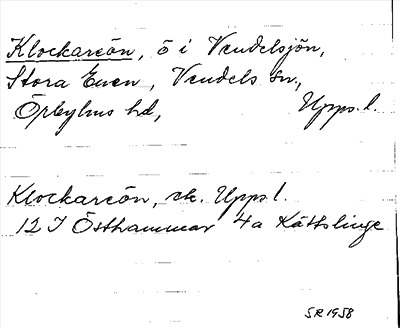 Klockareön, ö i Vendelsjön,
Stora Even, Vendels sn,
Örbyhus hd, Upps. l.
Klockareön, ek. Upps l.
12 I Östhammar 4a Kättslinge
SR 1958